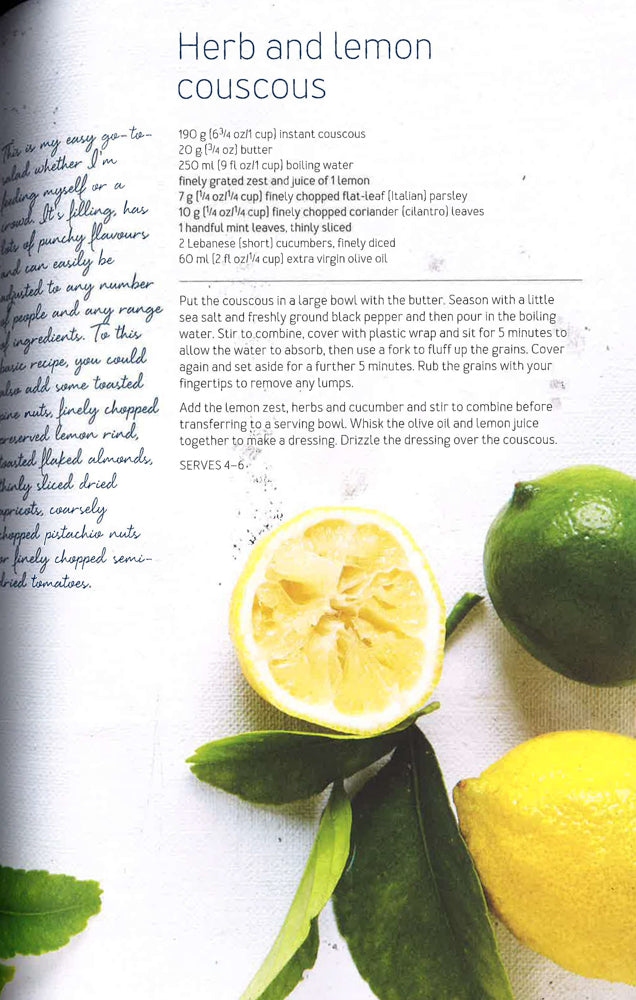 Herb and lemon
couscous
190 g (6¾ oz/1 cup) instant couscous
20 g (¾ oz) butter
250 ml (9 fl oz/1 cup) boiling water
finely grated zest and juice of 1 lemon
7 g (¼ oz/¼ cup) finely chopped flat-leaf (Italian) parsley
10 g (¼ oz/¼ cup) finely chopped coriander (cilantro) leaves
1 handful mint leaves, thinly sliced
2 Lebanese (short) cucumbers, finely diced
60 ml (2 fl oz/¼ cup) extra virgin olive oil
Put the couscous in a large bowl with the butter. Season with a little
sea salt and freshly ground black pepper and then pour in the boiling
water. Stir to combine, cover with plastic wrap and sit for 5 minutes to
allow the water to absorb, then use a fork to fluff up the grains. Cover
again and set aside for a further 5 minutes. Rub the grains with your
fingertips to remove any lumps.
Add the lemon zest, herbs and cucumber and stir to combine before
transferring to a serving bowl. Whisk the olive oil and lemon juice
together to make a dressing. Drizzle the dressing over the couscous.
SERVES 4–6
This is my easy go-to-
salad whether I'm
feeding myself or a
crowd. It's filling, has
lots of punchy flavours
and can easily be
adjusted to any number
of people and any range
of ingredients. To this
basic recipe, you could
also add some toasted
pine nuts, finely chopped
preserved lemon rind,
toasted flaked almonds,
thinly sliced dried
apricots, coarsely
chopped pistachio nuts
or finely chopped semi-
dried tomatoes.